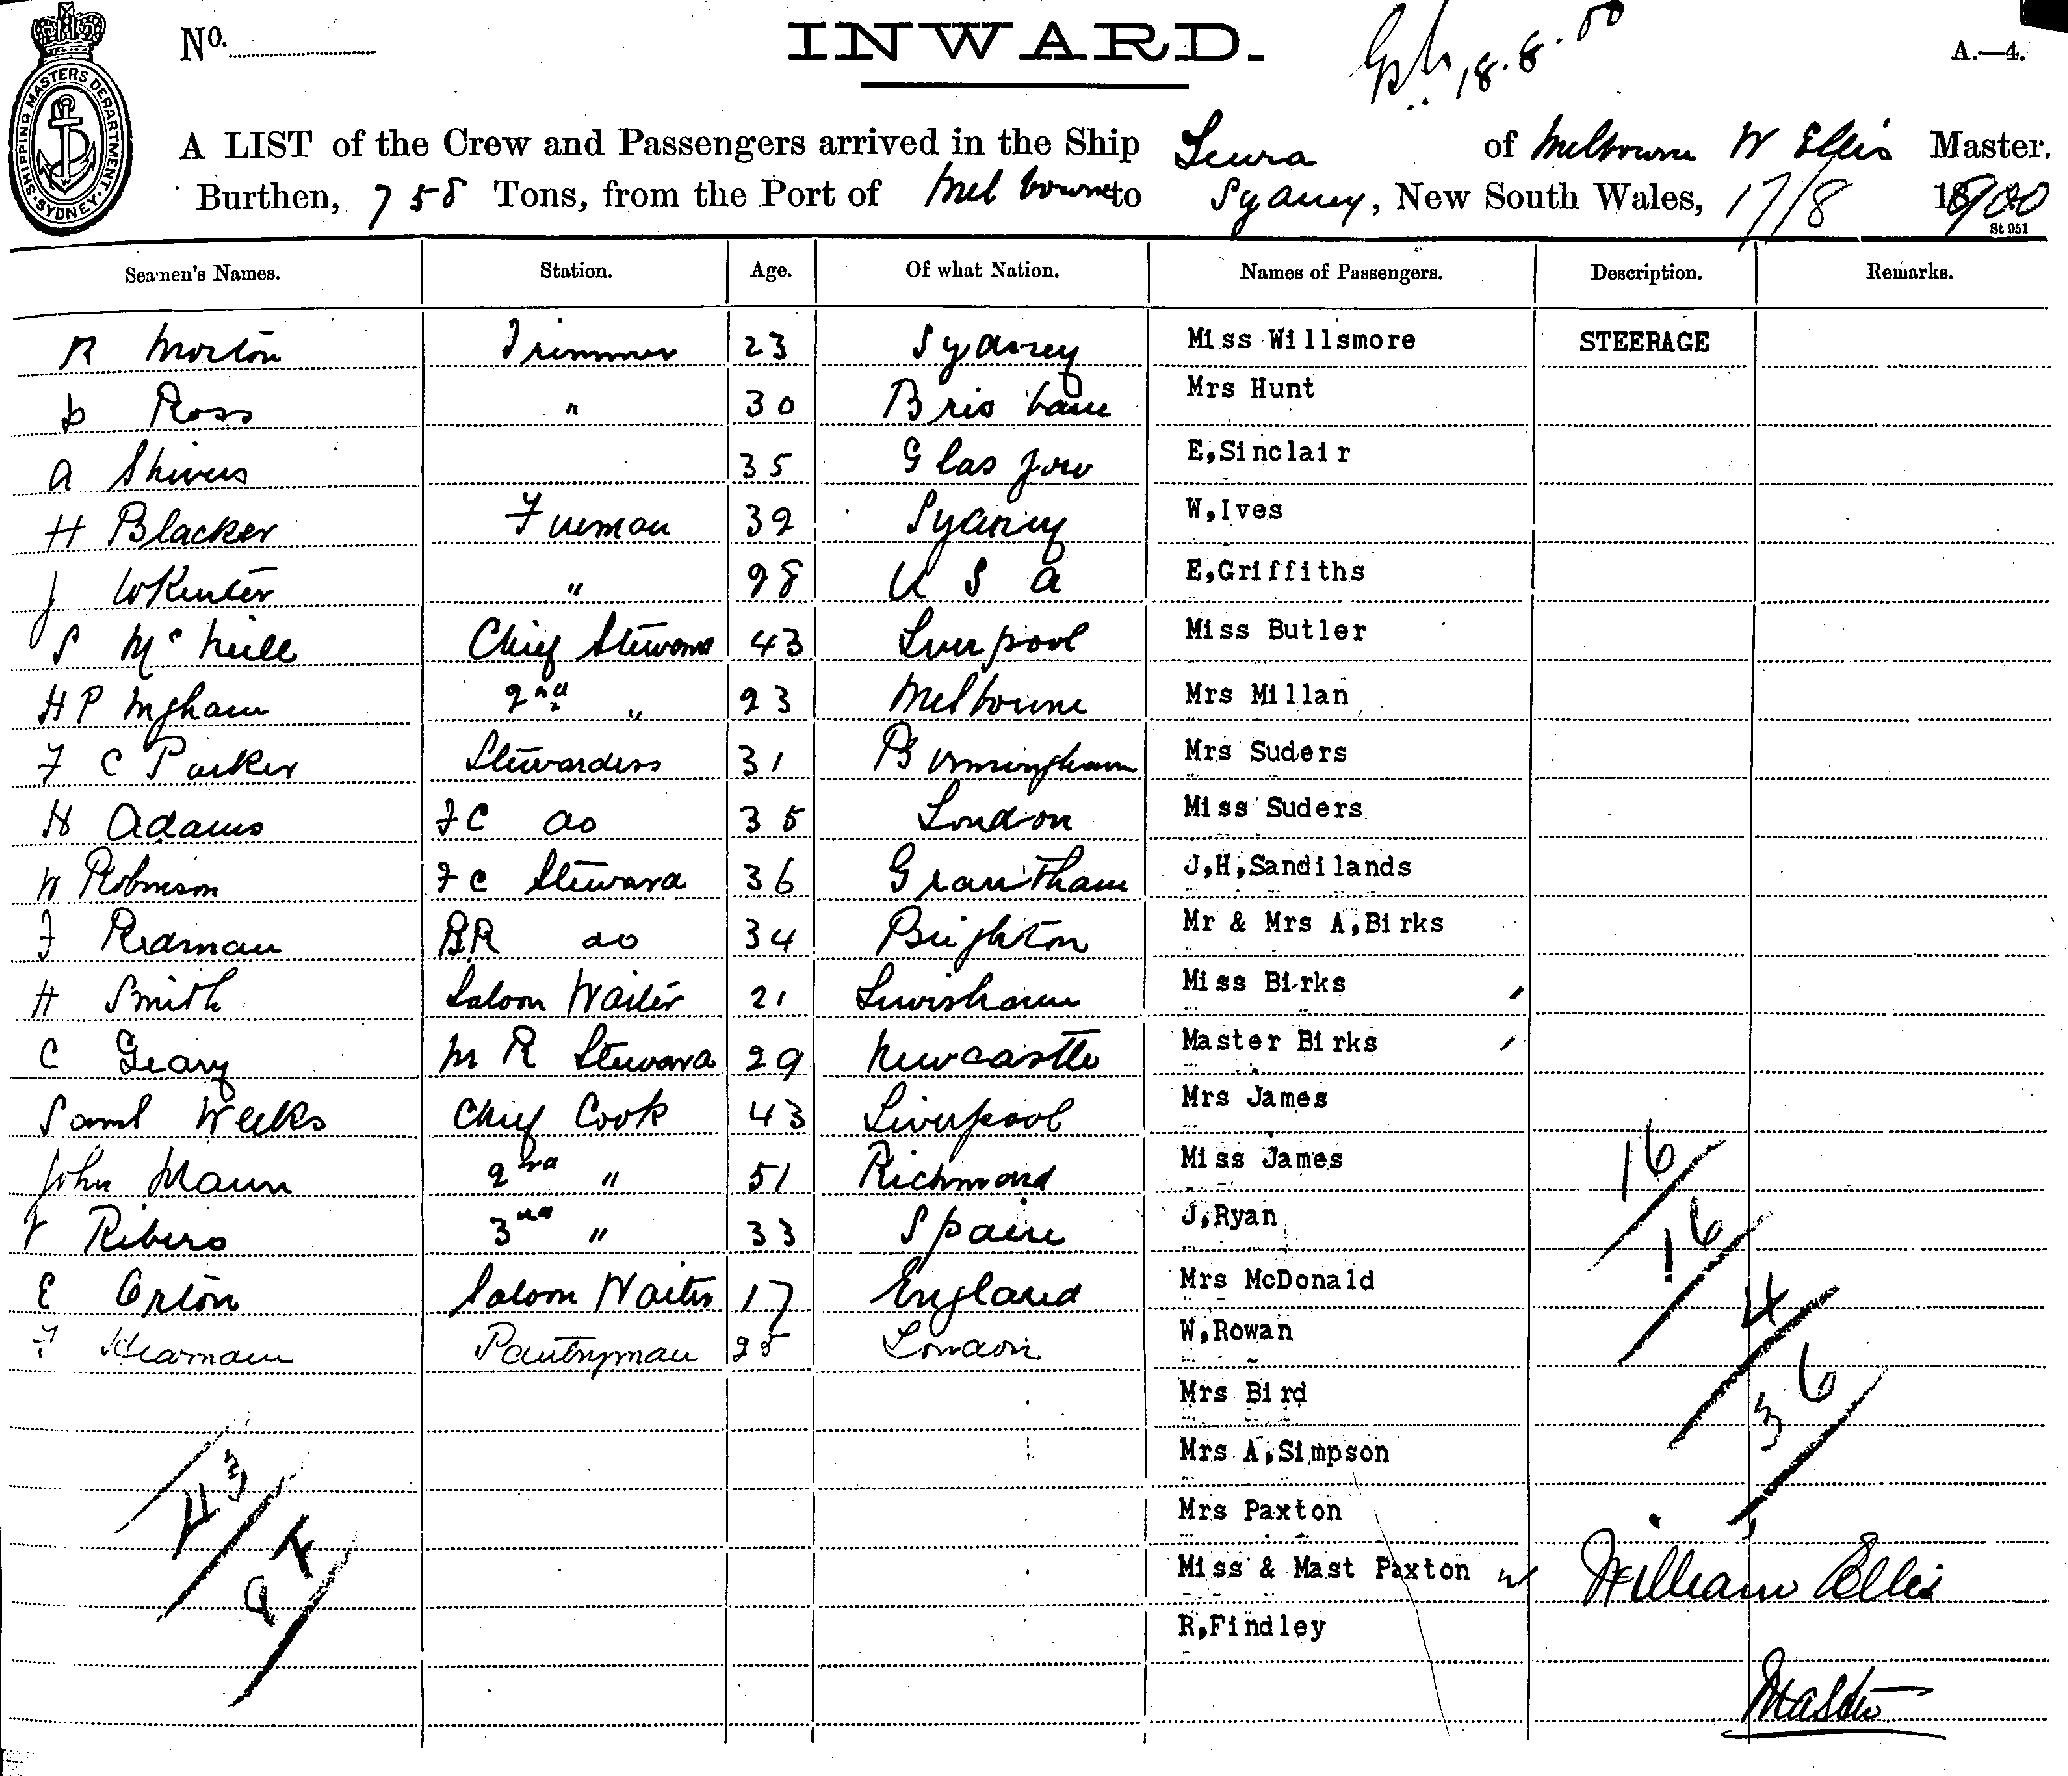 SHIPPING MASTERS DEPARTMENT. SYDNEY.
No.
INWARD.
18.8.00
A.—4.
A LIST of the Crew and Passengers arrived in the Ship Leura of Melbourne W Ellis Master.
Burthen, 758 Tons, from the Port of Melbourne to Sydney, New South Wales, 17/8 1900
St 951
Seamen's Names. Station. Age. Of what Nation. Names of Passengers. Description. Remarks.
R Morton Trimmer 23 Sydney Miss Willsmore STEERAGE
D Ross " 30 Brisbane Mrs Hunt
A Shivers 35 Glasgow E,Sinclair
H Blacker Fireman 32 Sydney W,Ives
J " 28 U S A E,Griffiths
S McNeill Chief Steward 43 Liverpool Miss Butler
H P Ingham 2nd " 23 Melbourne Mrs Millan
F C Parker Stewardess 31 Birmingham Mrs Suders
H Adams F C do 35 London Miss Suders
W Robinson F C Steward 36 Grantham J,H,Sandilands
F Redman BR do 34 Brighton Mr & Mrs A,Birks
H Smith Saloon Waiter 21 Lewisham Miss Birks
C Geary M R Steward 29 Newcastle Master Birks
Saml Weeks Chief Cook 43 Liverpool Mrs James
John Mann 2nd " 51 Richmond Miss James
F Ribero 3rd " 33 Spain J,Ryan
E Orton Saloon Waiter 17 England Mrs McDonald
F Pantryman 25 London W,Rowan
Mrs Bird
Mrs A,Simpson
Mrs Paxton
Miss & Mast Paxton
R,Findley
16
16
4
36
43
William Ellis
Master